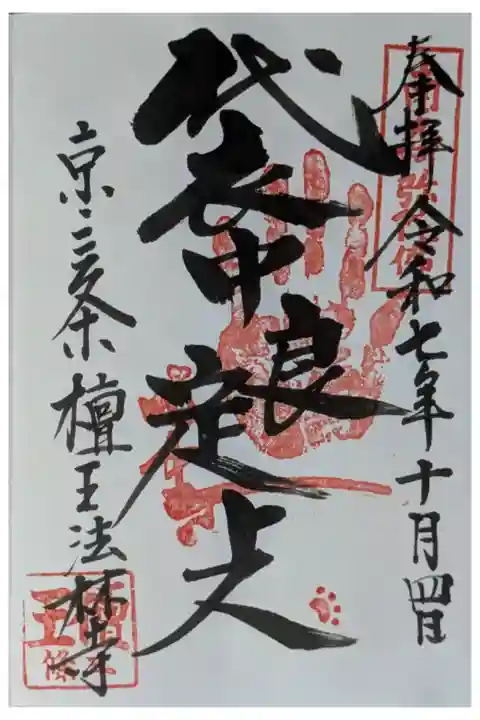 奉拝 令和七年十月四日
袋中良定上人
京・三条 檀王法林寺